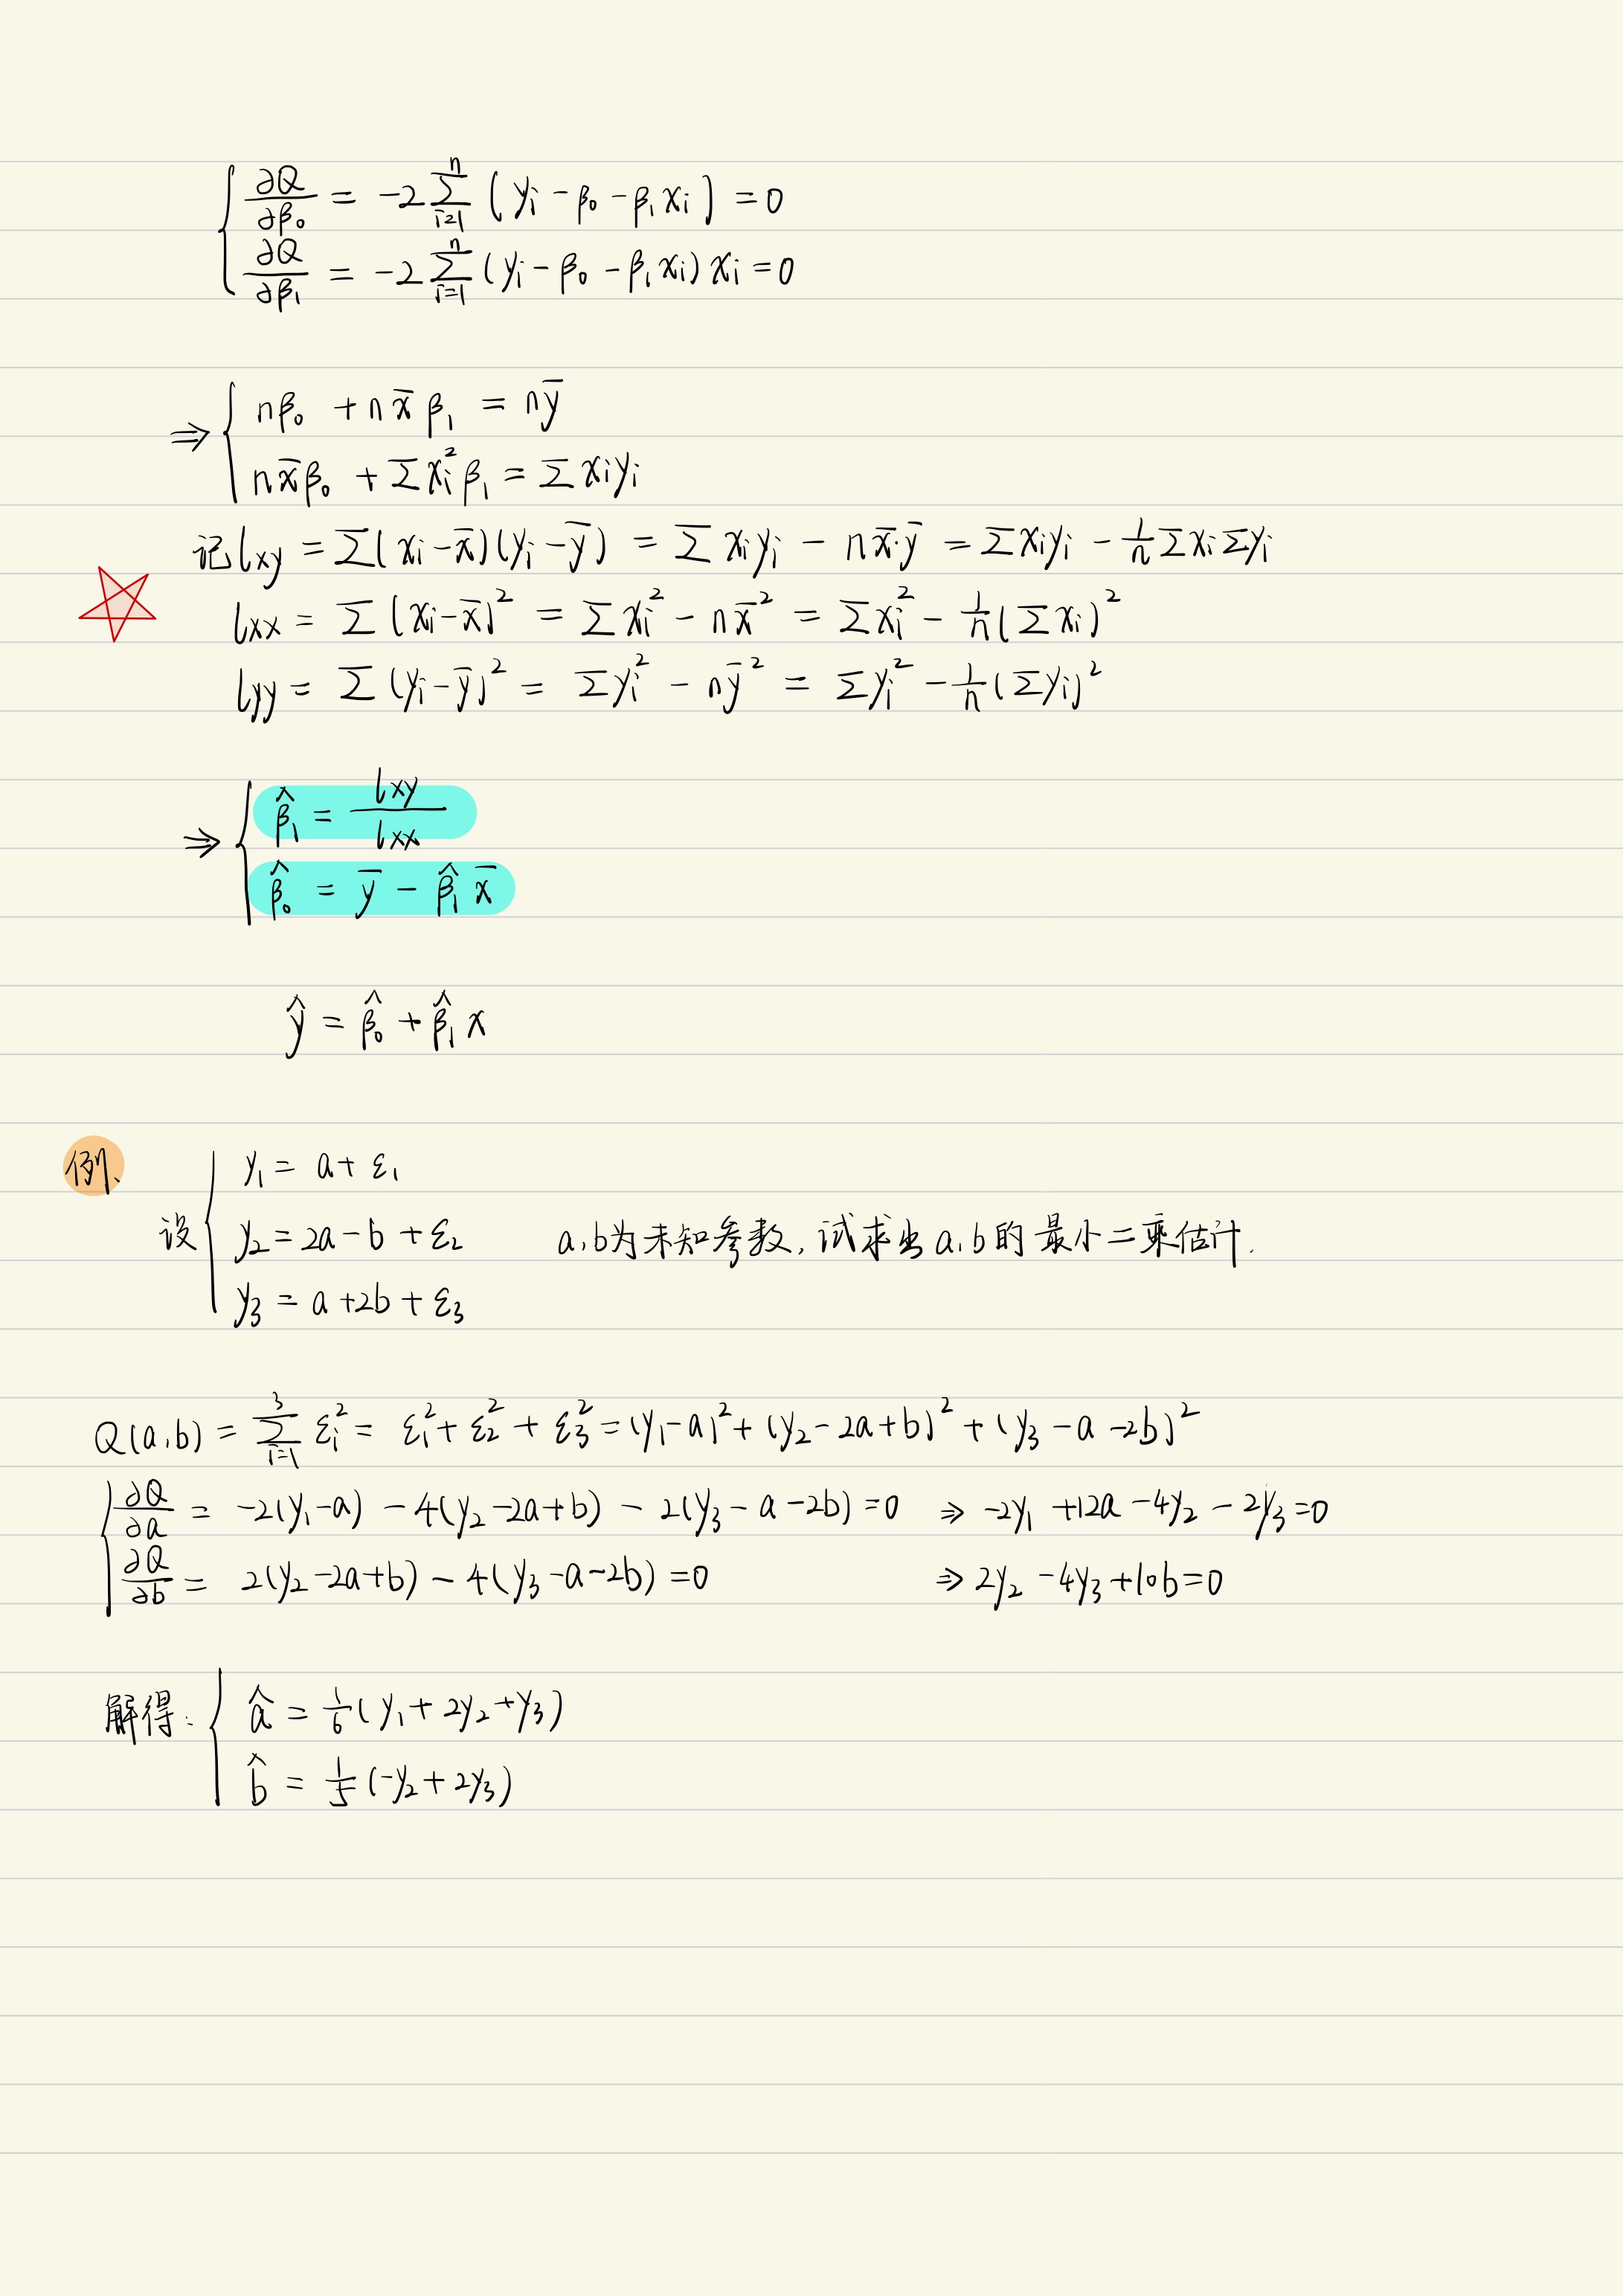 { ∂Q/∂β₀ = -2 Σ_{i=1}^{n} (yᵢ - β₀ - β₁xᵢ) = 0
∂Q/∂β₁ = -2 Σ_{i=1}^{n} (yᵢ - β₀ - β₁xᵢ) xᵢ = 0
⇒ { nβ₀ + nx̄β₁ = nȳ
nx̄β₀ + Σxᵢ²β₁ = Σxᵢyᵢ
记 lxy = Σ(xᵢ - x̄)(yᵢ - ȳ) = Σxᵢyᵢ - nx̄·ȳ = Σxᵢyᵢ - 1/n Σxᵢ Σyᵢ
lxx = Σ(xᵢ - x̄)² = Σxᵢ² - nx̄² = Σxᵢ² - 1/n (Σxᵢ)²
lyy = Σ(yᵢ - ȳ)² = Σyᵢ² - nȳ² = Σyᵢ² - 1/n (Σyᵢ)²
⇒ { β̂₁ = lxy/lxx
β̂₀ = ȳ - β̂₁x̄
ŷ = β̂₀ + β̂₁x
例、
设 { y₁ = a + ε₁
y₂ = 2a - b + ε₂ a, b为未知参数, 试求出 a, b 的最小二乘估计.
y₃ = a + 2b + ε₃
Q(a,b) = Σ_{i=1}^{3} εᵢ² = ε₁² + ε₂² + ε₃² = (y₁ - a)² + (y₂ - 2a + b)² + (y₃ - a - 2b)²
{ ∂Q/∂a = -2(y₁ - a) - 4(y₂ - 2a + b) - 2(y₃ - a - 2b) = 0 ⇒ -2y₁ + 12a - 4y₂ - 2y₃ = 0
∂Q/∂b = 2(y₂ - 2a + b) - 4(y₃ - a - 2b) = 0 ⇒ 2y₂ - 4y₃ + 10b = 0
解得: { â = 1/6 (y₁ + 2y₂ + y₃)
b̂ = 1/5 (-y₂ + 2y₃)